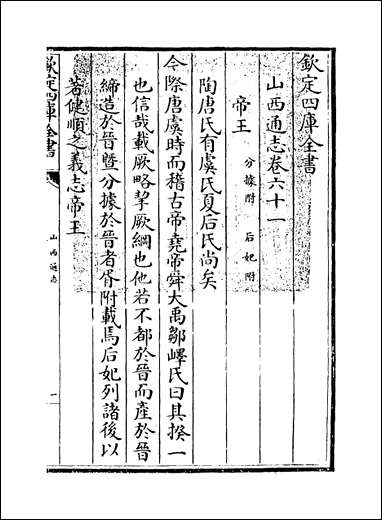 欽定四庫全書
山西通志卷六十一
帝王 分據附 后妃附
陶唐氏有虞氏夏后氏尚矣
今際唐虞時而稽古帝堯帝舜大禹鄒嶧氏曰其揆一
也信哉載厥略挈厥綱也他若不都於晉而產於晉
締造於晉暨分據於晉者胥附載焉后妃列諸後以
著健順之義志帝王
欽定四庫全書
山西通志
一